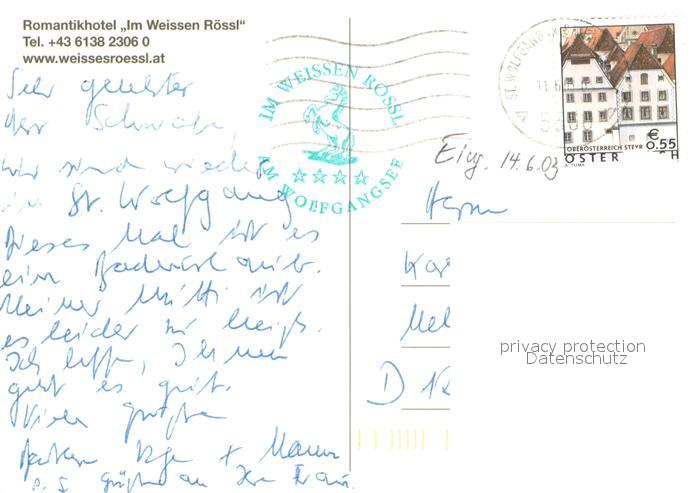 Romantikhotel „Im Weissen Rössl“
Tel. +43 6138 2306 0
www.weissesroessl.at
Sehr geehrter
Herr Schwabe,
wir sind wieder
in St. Wolfgang
Dieses Mal ist es
ein
Meiner Mutti ist
es leider zu heiß.
Ich hoffe, Ihnen
geht es gut.
Viele Grüße
+ Mama
P.S. Grüße an Ihre Frau.
IM WEISSEN RÖSSL
AM WOLFGANGSEE
ST. WOLFGANG
€ 0,55
OBERÖSTERREICH STEYR
A. TUMA
Eing. 14.6.03
Herrn
D
privacy protection
Datenschutz